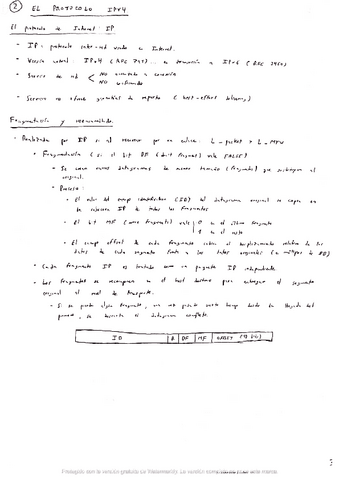 ② EL PROTOCOLO IPv4
El protocolo de Internet: IP
• IP = protocolo inter-red usado en Internet.
• Versión actual: IPv4 (RFC 791)... en transición a IPv6 (RFC 2460)
• Servicio de red < NO orientado a conexión
NO confirmado
• Servicio no ofrece garantías de reparto (best-effort delivery)
Fragmentación y reensamblado.
• Realizada por IP si es necesario por un enlace: L_packet > L_MTU
• Fragmentación (si el bit DF (don't fragment) vale FALSE)
• Se crean nuevos datagramas de menor tamaño (fragmentos) que sustituyen al
original.
• Proceso:
• El valor del campo identification (ID) del datagrama original se copia en
la cabecera IP de todos los fragmentos
• El bit MF (more fragments) vale 0 en el último fragmento
1 en el resto
• El campo offset de cada fragmento indica el desplazamiento relativo de los
datos de cada fragmento frente a los datos originales (en múltiplos de 8B)
• Cada fragmento IP es tratado como un paquete IP independiente
• Los fragmentos se reensamblan en el host destino para entregar el segmento
original al nivel de transporte.
• Si se pierde algún fragmento, una vez pasado cierto tiempo desde la llegada del
primero, se descarta el datagrama completo.
ID DF MF OFFSET